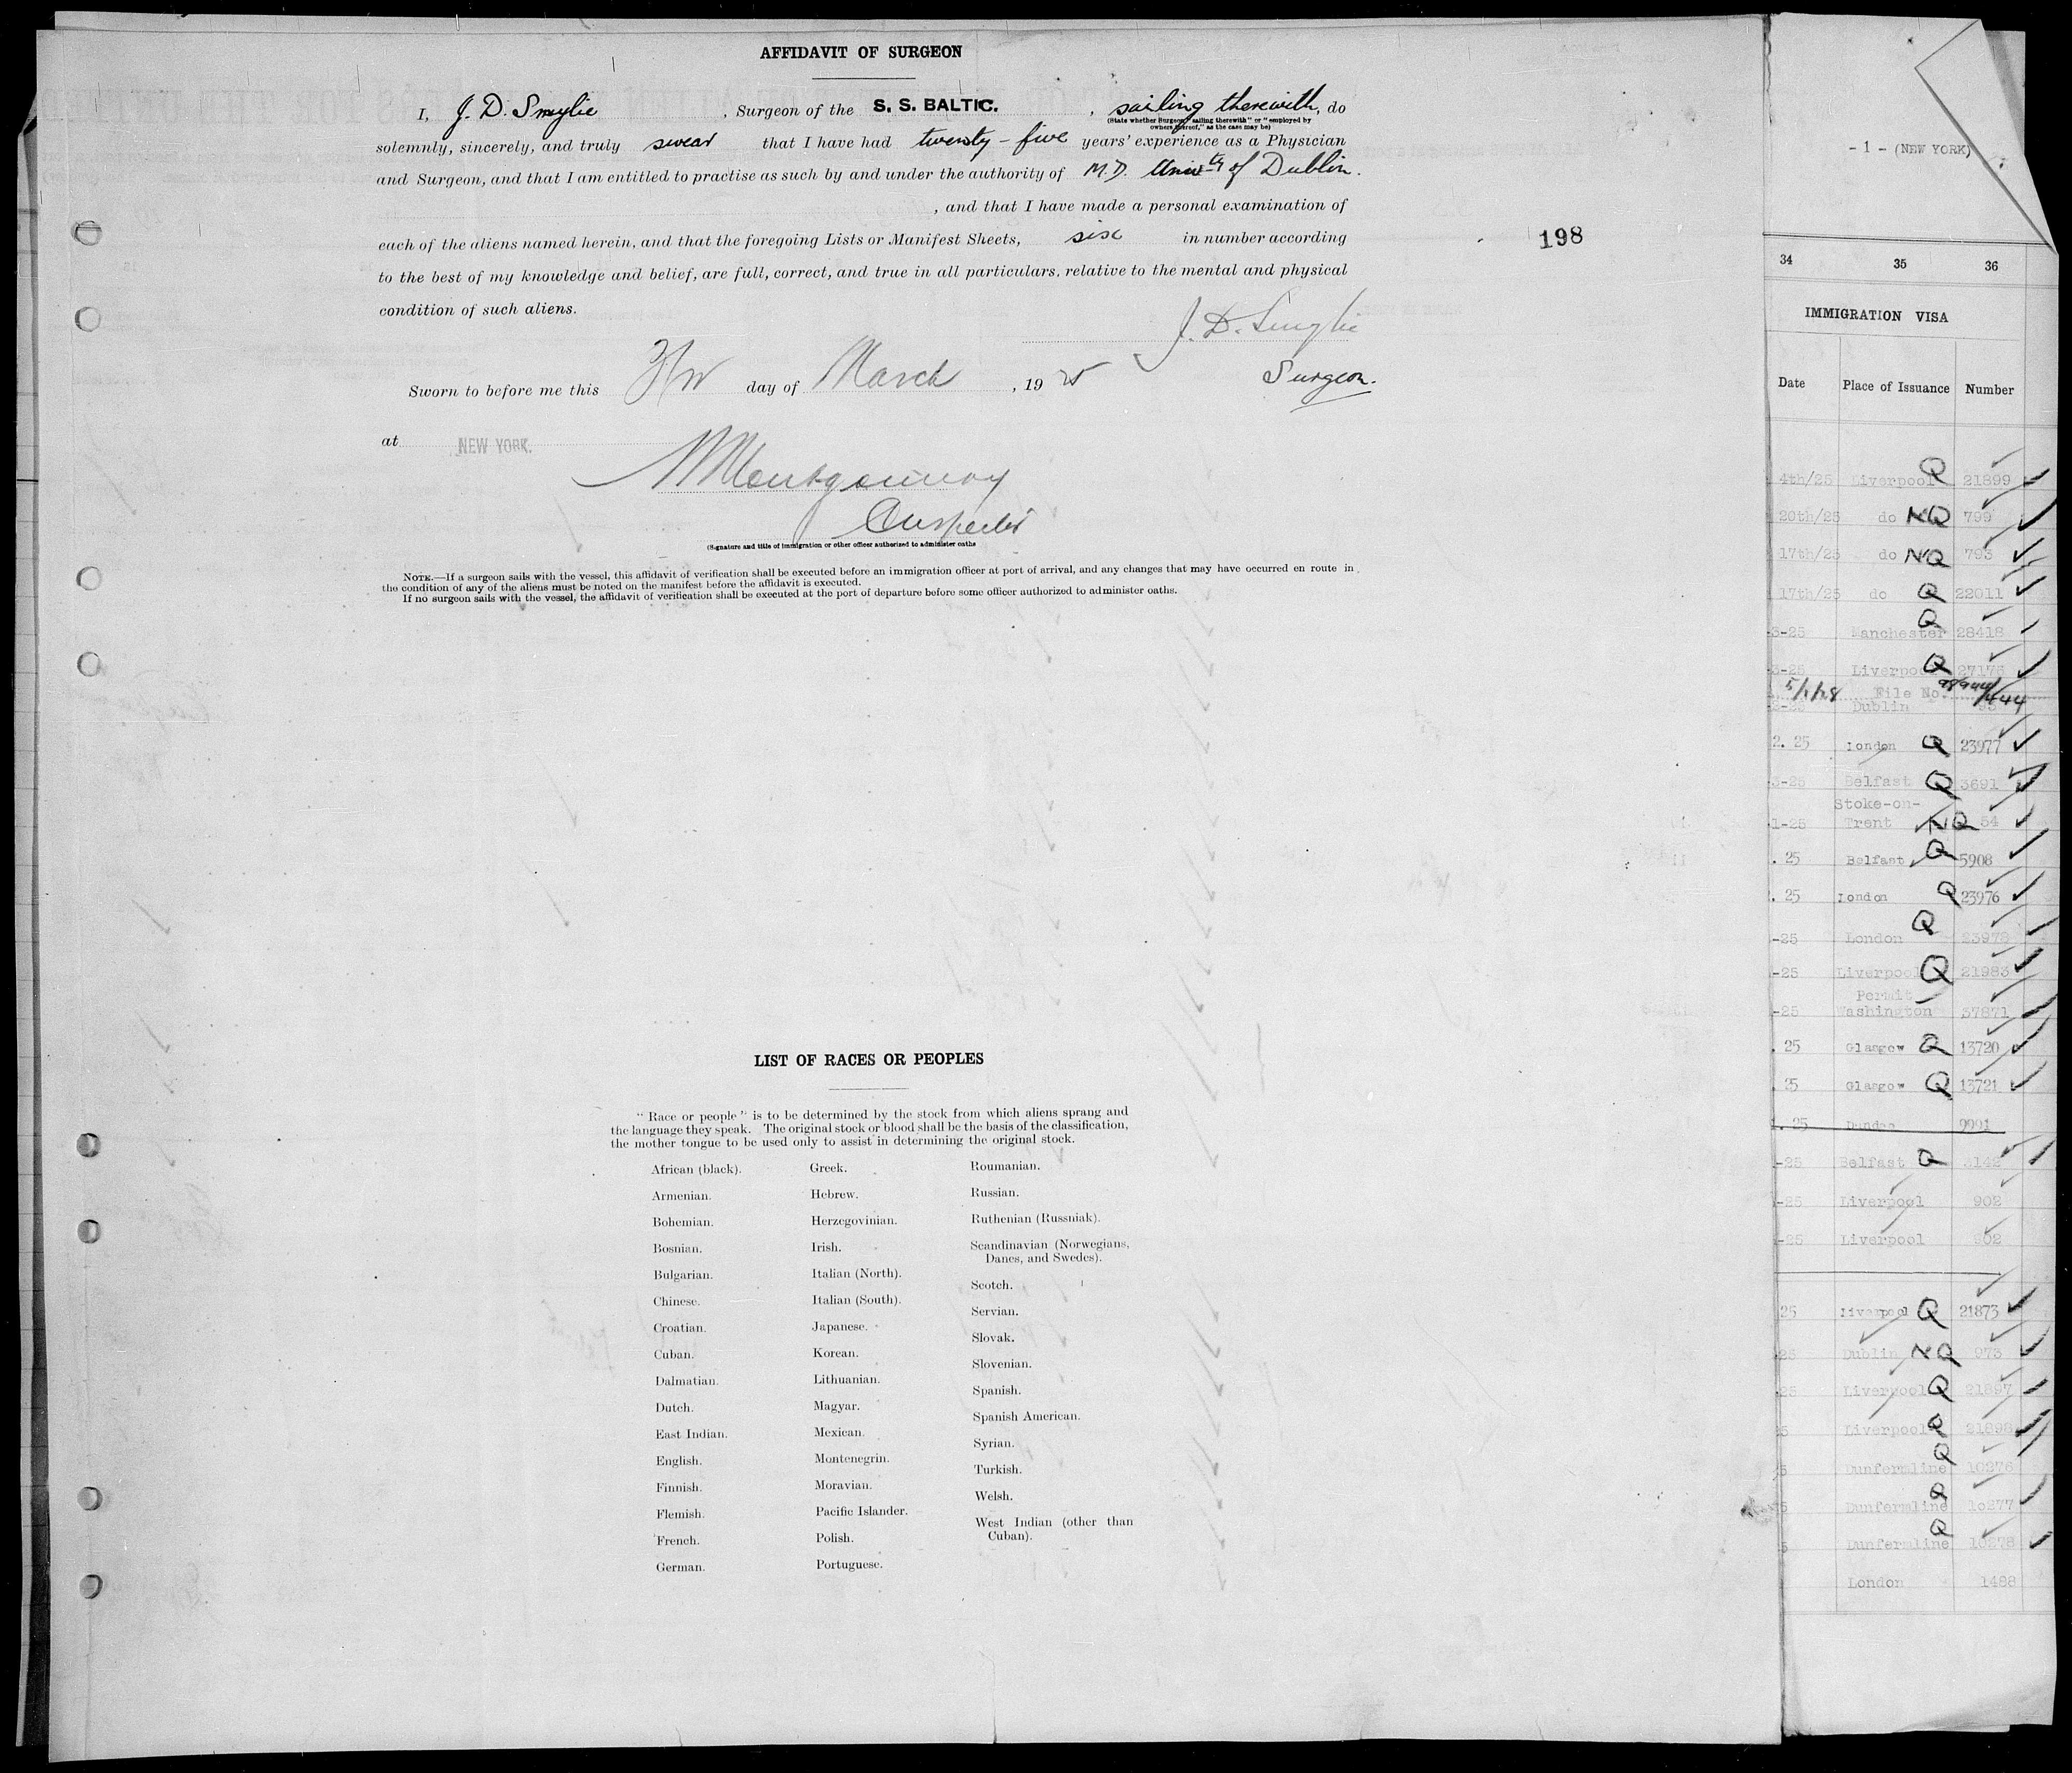 AFFIDAVIT OF SURGEON
I, J. D. Smylie, Surgeon of the S. S. BALTIC. , sailing therewith, do
(State whether Surgeon "sailing therewith" or "employed by
owners thereof," as the case may be)
solemnly, sincerely, and truly swear that I have had twenty-five years' experience as a Physician
and Surgeon, and that I am entitled to practise as such by and under the authority of M.D. Univty of Dublin.
, and that I have made a personal examination of
each of the aliens named herein, and that the foregoing Lists or Manifest Sheets, six in number according
to the best of my knowledge and belief, are full, correct, and true in all particulars, relative to the mental and physical
condition of such aliens.
198
J. D. Smylie
Surgeon.
Sworn to before me this day of March , 19 25
at NEW YORK.
Montgomery
Inspector
(Signature and title of immigration or other officer authorized to administer oaths
NOTE.—If a surgeon sails with the vessel, this affidavit of verification shall be executed before an immigration officer at port of arrival, and any changes that may have occurred en route in
the condition of any of the aliens must be noted on the manifest before the affidavit is executed.
If no surgeon sails with the vessel, the affidavit of verification shall be executed at the port of departure before some officer authorized to administer oaths.
LIST OF RACES OR PEOPLES
" Race or people " is to be determined by the stock from which aliens sprang and
the language they speak. The original stock or blood shall be the basis of the classification,
the mother tongue to be used only to assist in determining the original stock.
African (black).
Armenian.
Bohemian.
Bosnian.
Bulgarian.
Chinese.
Croatian.
Cuban.
Dalmatian.
Dutch.
East Indian.
English.
Finnish.
Flemish.
French.
German.
Greek.
Hebrew.
Herzegovinian.
Irish.
Italian (North).
Italian (South).
Japanese.
Korean.
Lithuanian.
Magyar.
Mexican.
Montenegrin.
Moravian.
Pacific Islander.
Polish.
Portuguese.
Roumanian.
Russian.
Ruthenian (Russniak).
Scandinavian (Norwegians,
Danes, and Swedes).
Scotch.
Servian.
Slovak.
Slovenian.
Spanish.
Spanish American.
Syrian.
Turkish.
Welsh.
West Indian (other than
Cuban).
- 1 - (NEW YORK)
34 35 36
IMMIGRATION VISA
Date Place of Issuance Number
4th/25 Liverpool Q 21899
20th/25 do NQ 799
17th/25 do NQ 793
17th/25 do Q 22011
-3-25 Manchester Q 28418
-3-25 Liverpool Q 27175
5/1/28 File No.
Dublin
2. 25 London Q 23977
-3-25 Belfast Q 3691
Stoke-on-
1-25 Trent NQ 54
. 25 Belfast Q 5908
. 25 London Q 23976
-25 London Q
-25 Liverpool Q 21983
Permit
-25 Washington 37871
. 25 Glasgow Q 13720
. 25 Glasgow Q 13721
. 25 Dundee 9991
-25 Belfast Q 3142
-25 Liverpool 902
-25 Liverpool 902
25 Liverpool Q 21873
25 Dublin NQ 973
25 Liverpool Q 21897
5 Liverpool Q 21898
5 Dunfermline Q 10276
5 Dunfermline Q 10277
5 Dunfermline Q 10278
London 1488